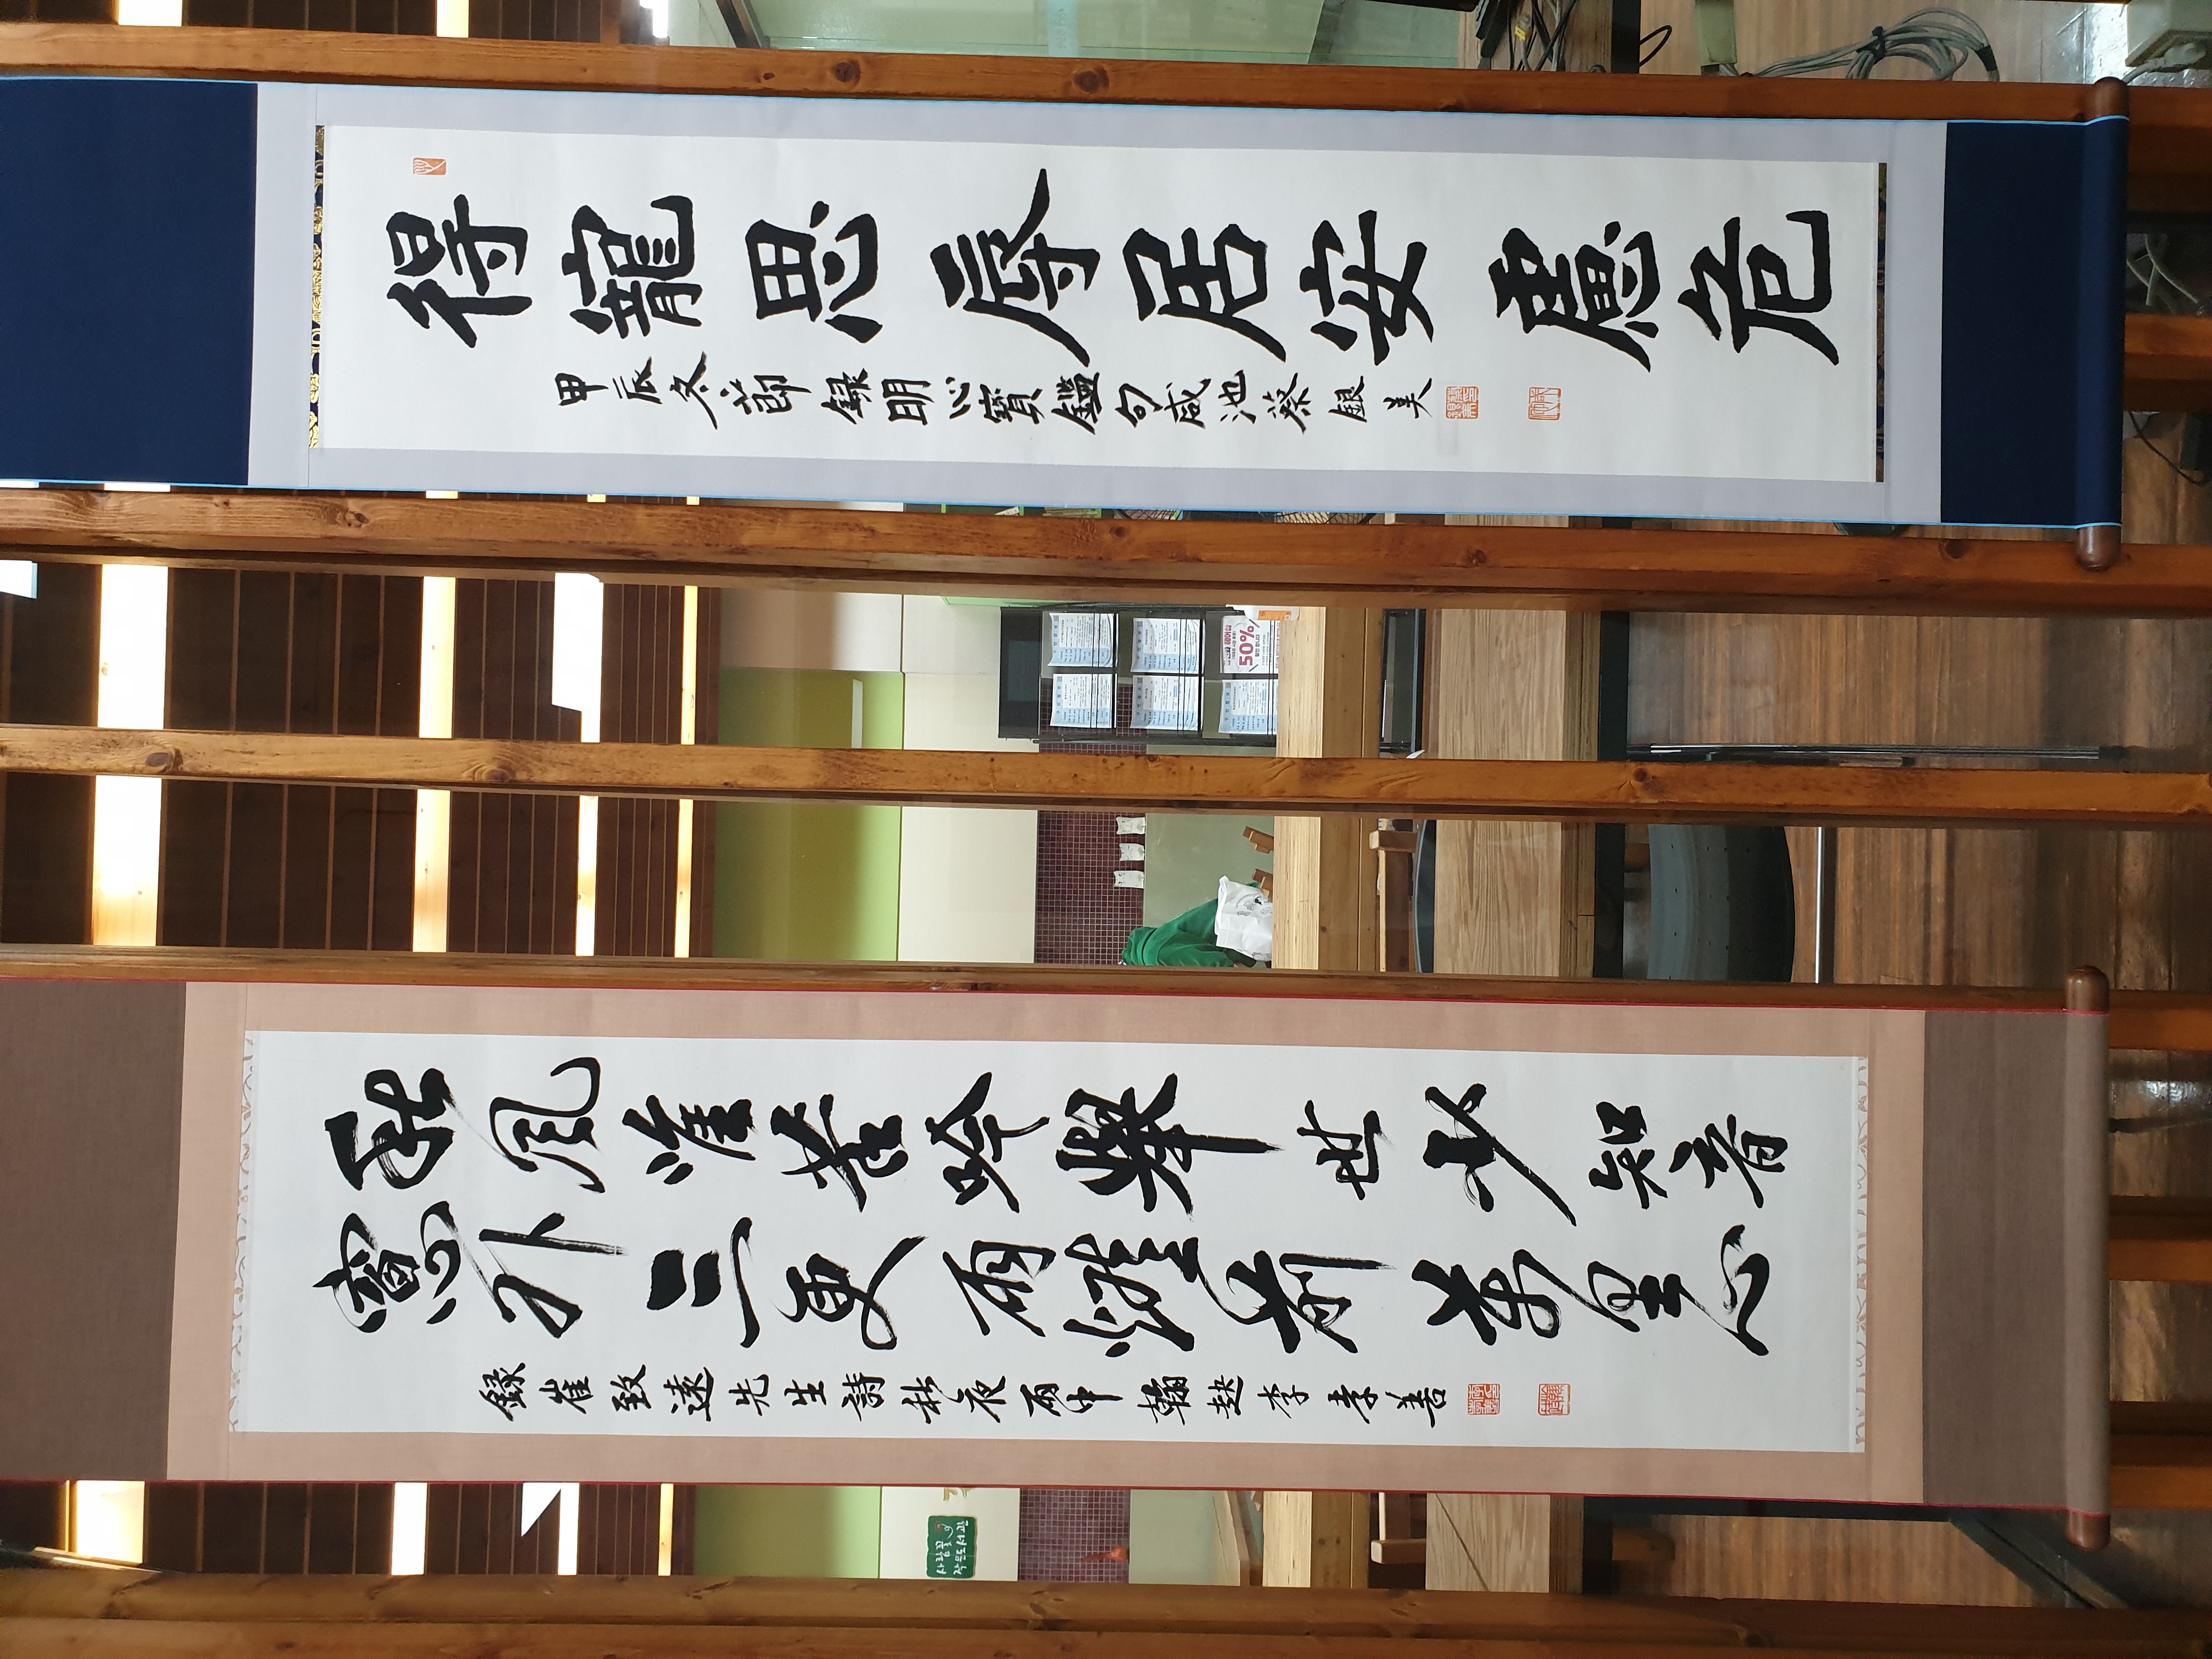 得寵思辱居安慮危
甲辰冬節錄明心寶鑑句咸池蔡銀美
秋風惟苦吟擧世少知音
窻外三更雨燈前萬里心
錄崔致遠先生詩秋夜雨中翰李孝善
50%
작은도서관